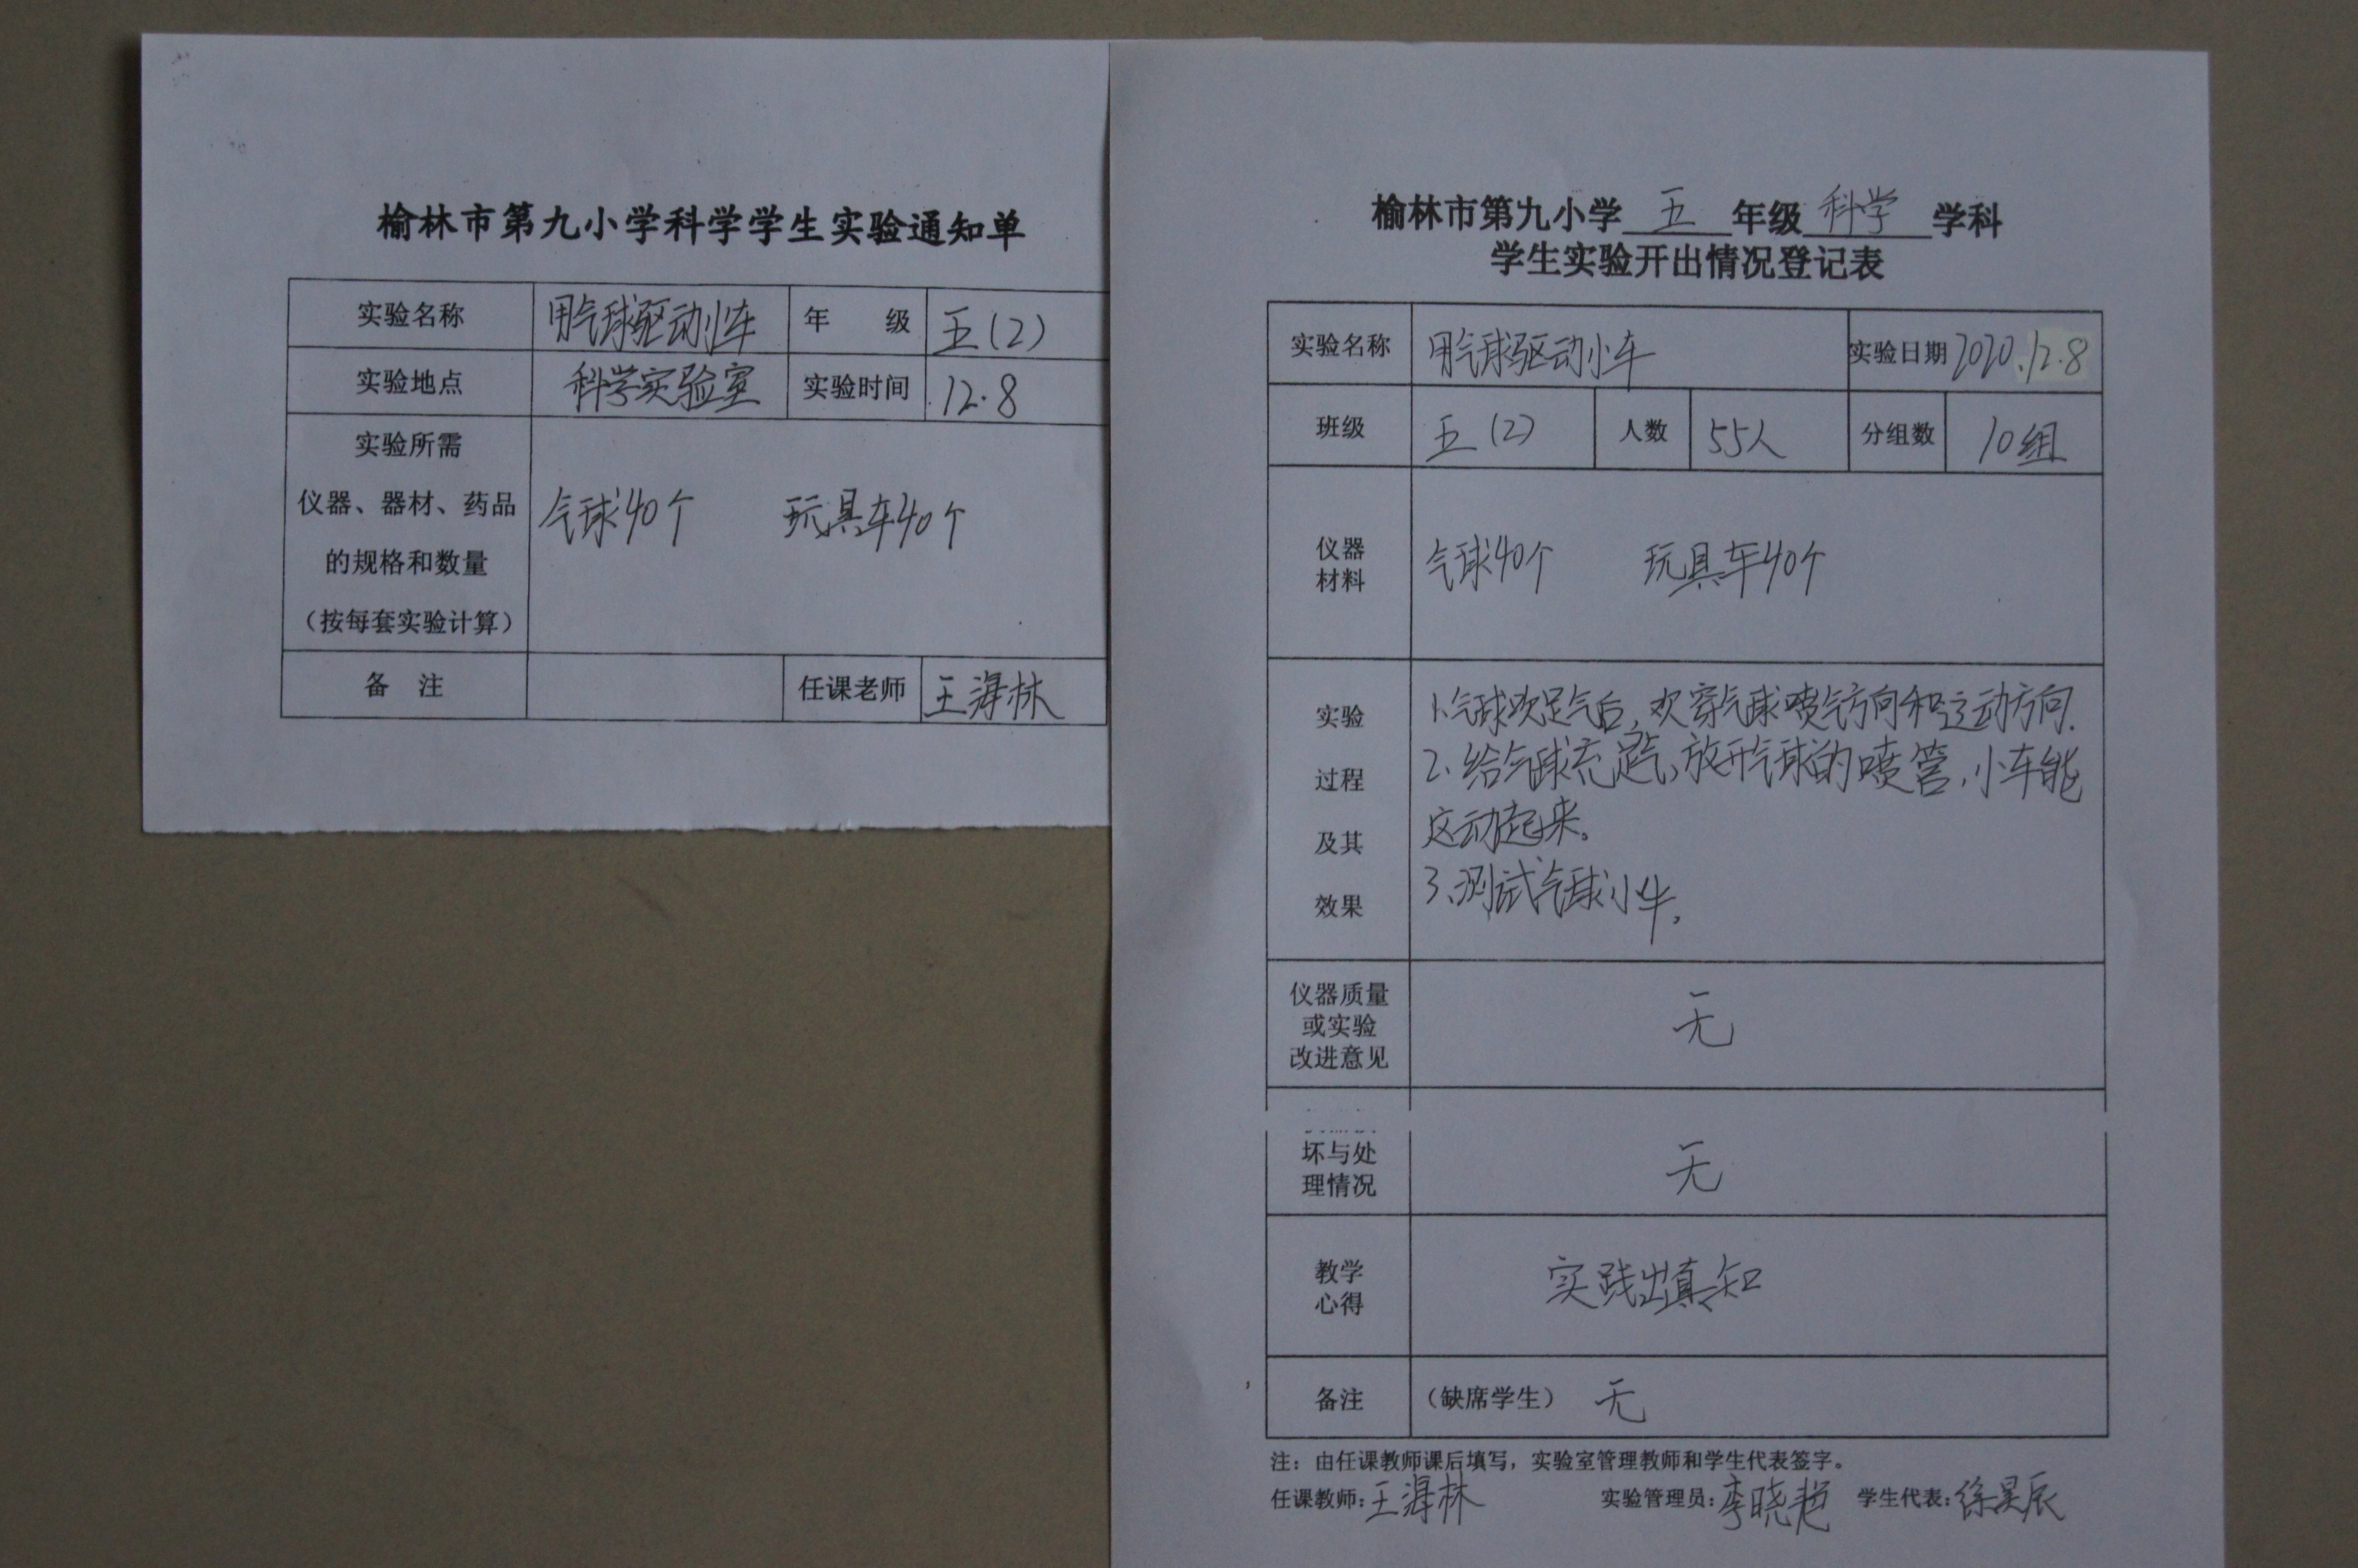 榆林市第九小学科学学生实验通知单
实验名称 用气球驱动小车 年 级 五(2)
实验地点 科学实验室 实验时间 12.8
实验所需
仪器、器材、药品
的规格和数量
（按每套实验计算）
气球40个 玩具车40个
备 注 任课老师 王海林
榆林市第九小学 五 年级 科学 学科
学生实验开出情况登记表
实验名称 用气球驱动小车 实验日期 2020.12.8
班级 五(2) 人数 55人 分组数 10组
仪器
材料
气球40个 玩具车40个
实验
过程
及其
效果
1.气球 足气后, 气球喷气方向和运动方向.
2.给气球充足气,放开气球的喷管,小车能
运动起来。
3.测试气球小车.
仪器质量
或实验
改进意见
无
坏与处
理情况
无
教学
心得
实践出真知
备注 （缺席学生） 无
注：由任课教师课后填写，实验室管理教师和学生代表签字。
任课教师:王海林 实验管理员:李晓艳 学生代表:徐昊辰